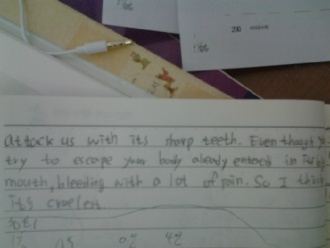 200
attack us with its sharp teeth. Even though
try to escape your body already enterds in its
mouth, bleeding with a lot of pain. So I think
its cruelest